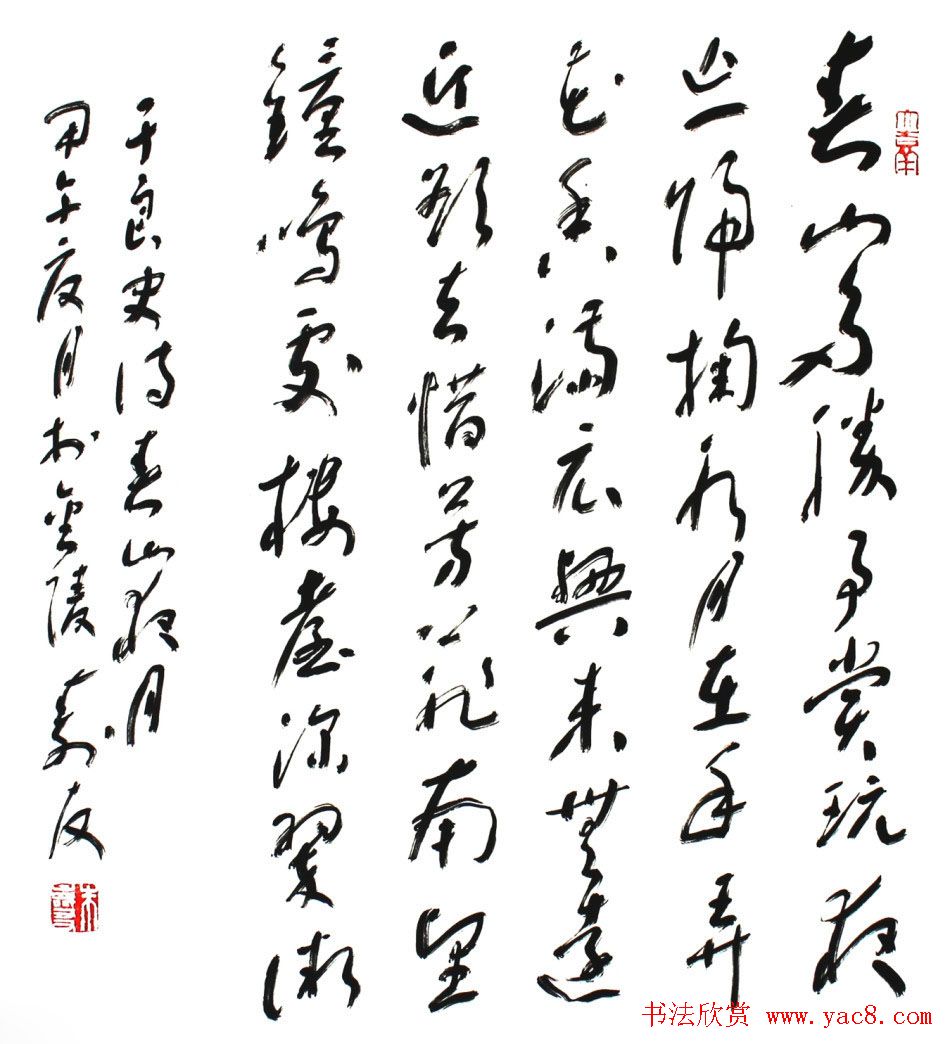 春山多勝事賞玩夜
忘歸掬水月在手弄
花香滿衣興来無遠
近欲去惜芳菲南望
鐘鳴處樓臺深翠微
于良史詩春山夜月
甲午夏月於金陵壽友
朱壽友
书法欣赏 www.yac8.com